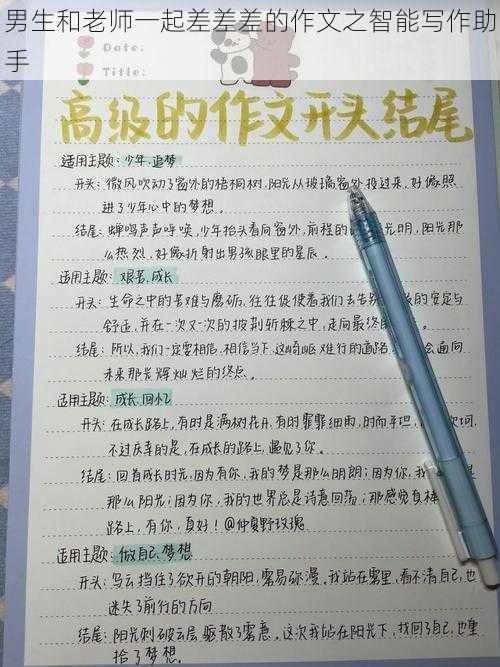 男生和老师一起差差差的作文之智能写作助
手
Date:
Title:
高级的作文开头结尾
适用主题:少年,追梦
开头:微风吹动了窗外的梧桐树,阳光从玻璃窗外投过来,好像照
进了少年心中的梦想。
结尾:蝉鸣声声呼唤,少年抬头看向窗外,前程的光明,阳光那
么热烈,好像折射出男孩眼里的星辰。
适用主题:艰苦,成长
开头:生命之中的苦难与磨砺,往往促使着我们去告别的安定与
舒适,并在一次又一次的披荆斩棘之中,走向最终
结尾:所以,我们一定要相信,相信当下,这崎岖难行的道路,会通向
未来那光辉灿烂的终点。
适用主题:成长,回忆
开头:在成长路上,有时是满树花开,有时霏霏细雨,时而平坦,坷,
不过庆幸的是,在成长的路上,遇见了你。
结尾:回首成长时光,因为有你,我的梦是那么明朗;因为你,我是
那么阳光;因为你,我的世界总是诗意回荡;那感觉真棒
路上,有你,真好!@仲夏野玫瑰
适用主题:做自己,梦想
开头:乌云挡住了欲开的朝阳,雾易弥漫。我站在雾里,看不清自己,也
迷失了前行的方向
结尾:阳光刺破云层,驱散了雾意。这次我站在阳光下,找回了自己,也重
拾了梦想。